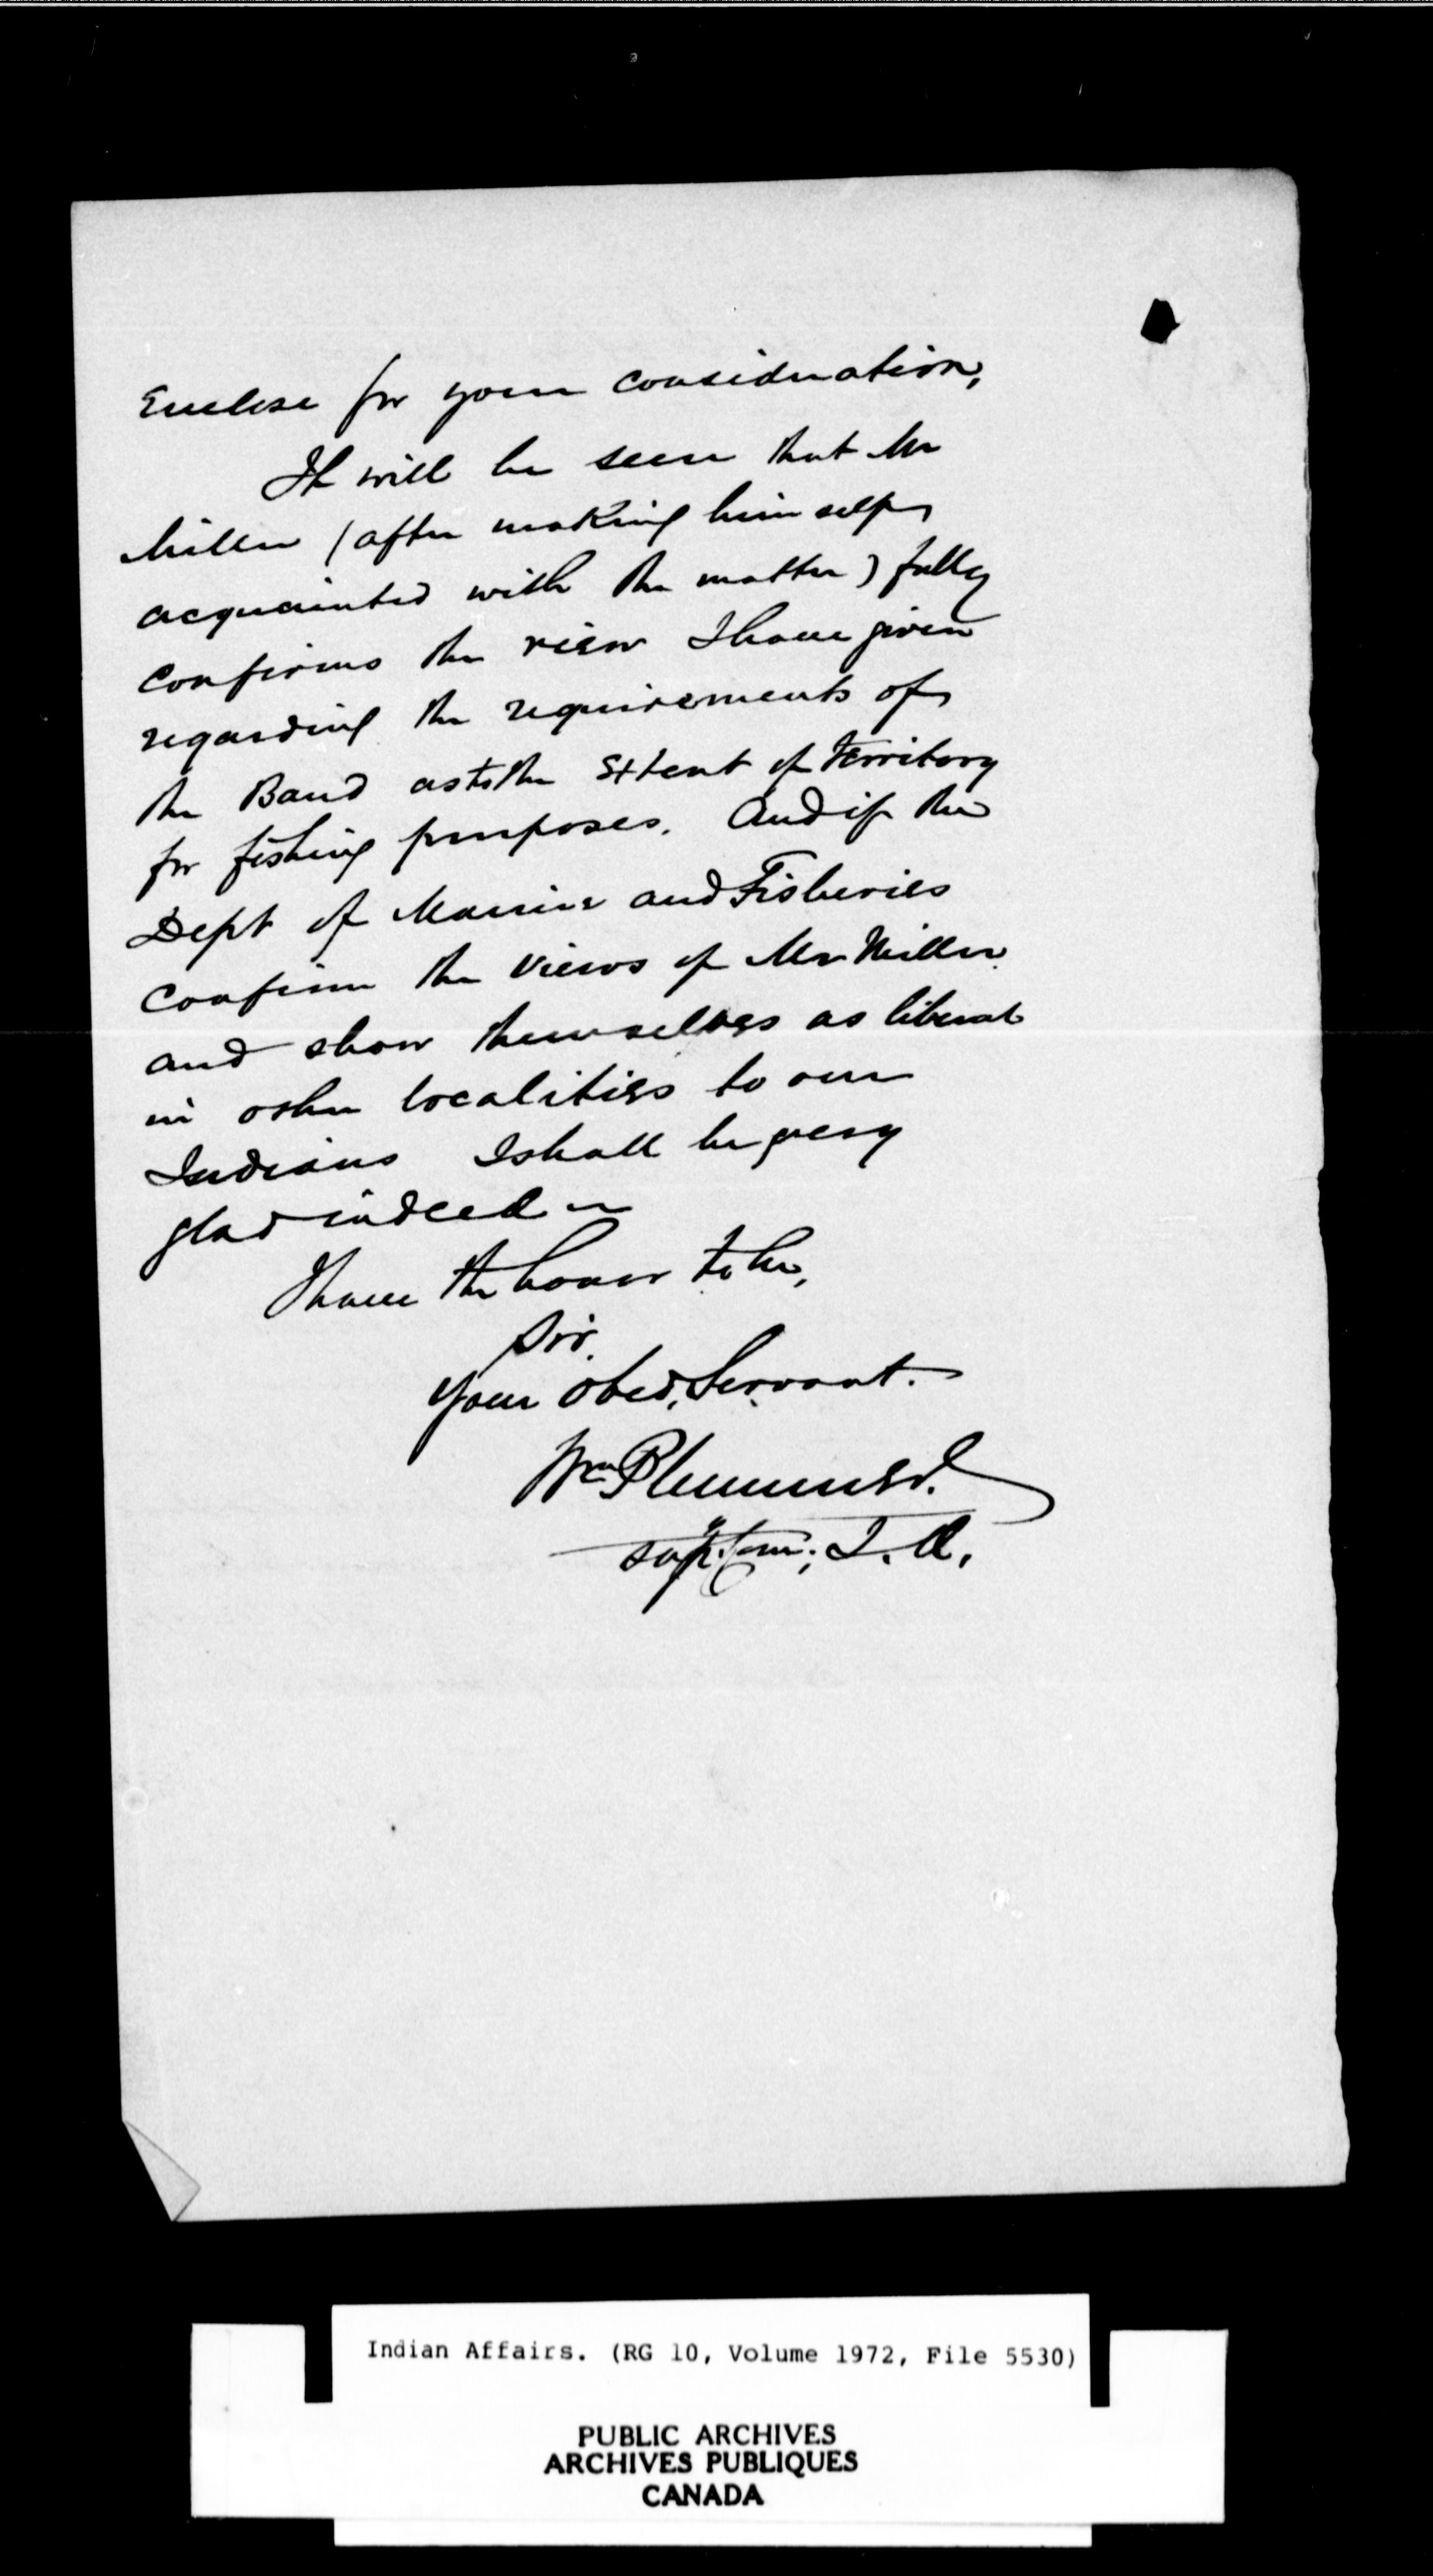 Enclose for your consideration,
It will be seen that Mr
Miller (after making himself
acquainted with the matter) fully
confirms the view I have given
regarding the requirements of
the Band as to the Extent of Territory
for fishing purposes. And if the
Dept of Marine and Fisheries
Confirm the views of Mr Miller
and show themselves as liberal
in other localities to our
Indians I shall be very
glad indeed
I have the honor to be,
Sir.
Your obed. Servant.
Wm Plummer.
Supt. Com; I. A.
Indian Affairs. (RG 10, Volume 1972, File 5530)
PUBLIC ARCHIVES
ARCHIVES PUBLIQUES
CANADA